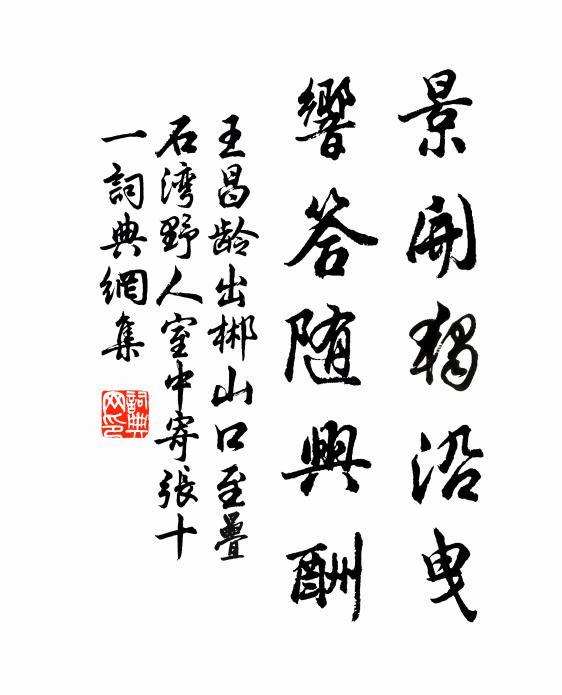 景開獨沿曳
響答随興酬
王昌龄出郴山口至疊
石湾野人室中寄張十
一詞典網集
詞典
网印